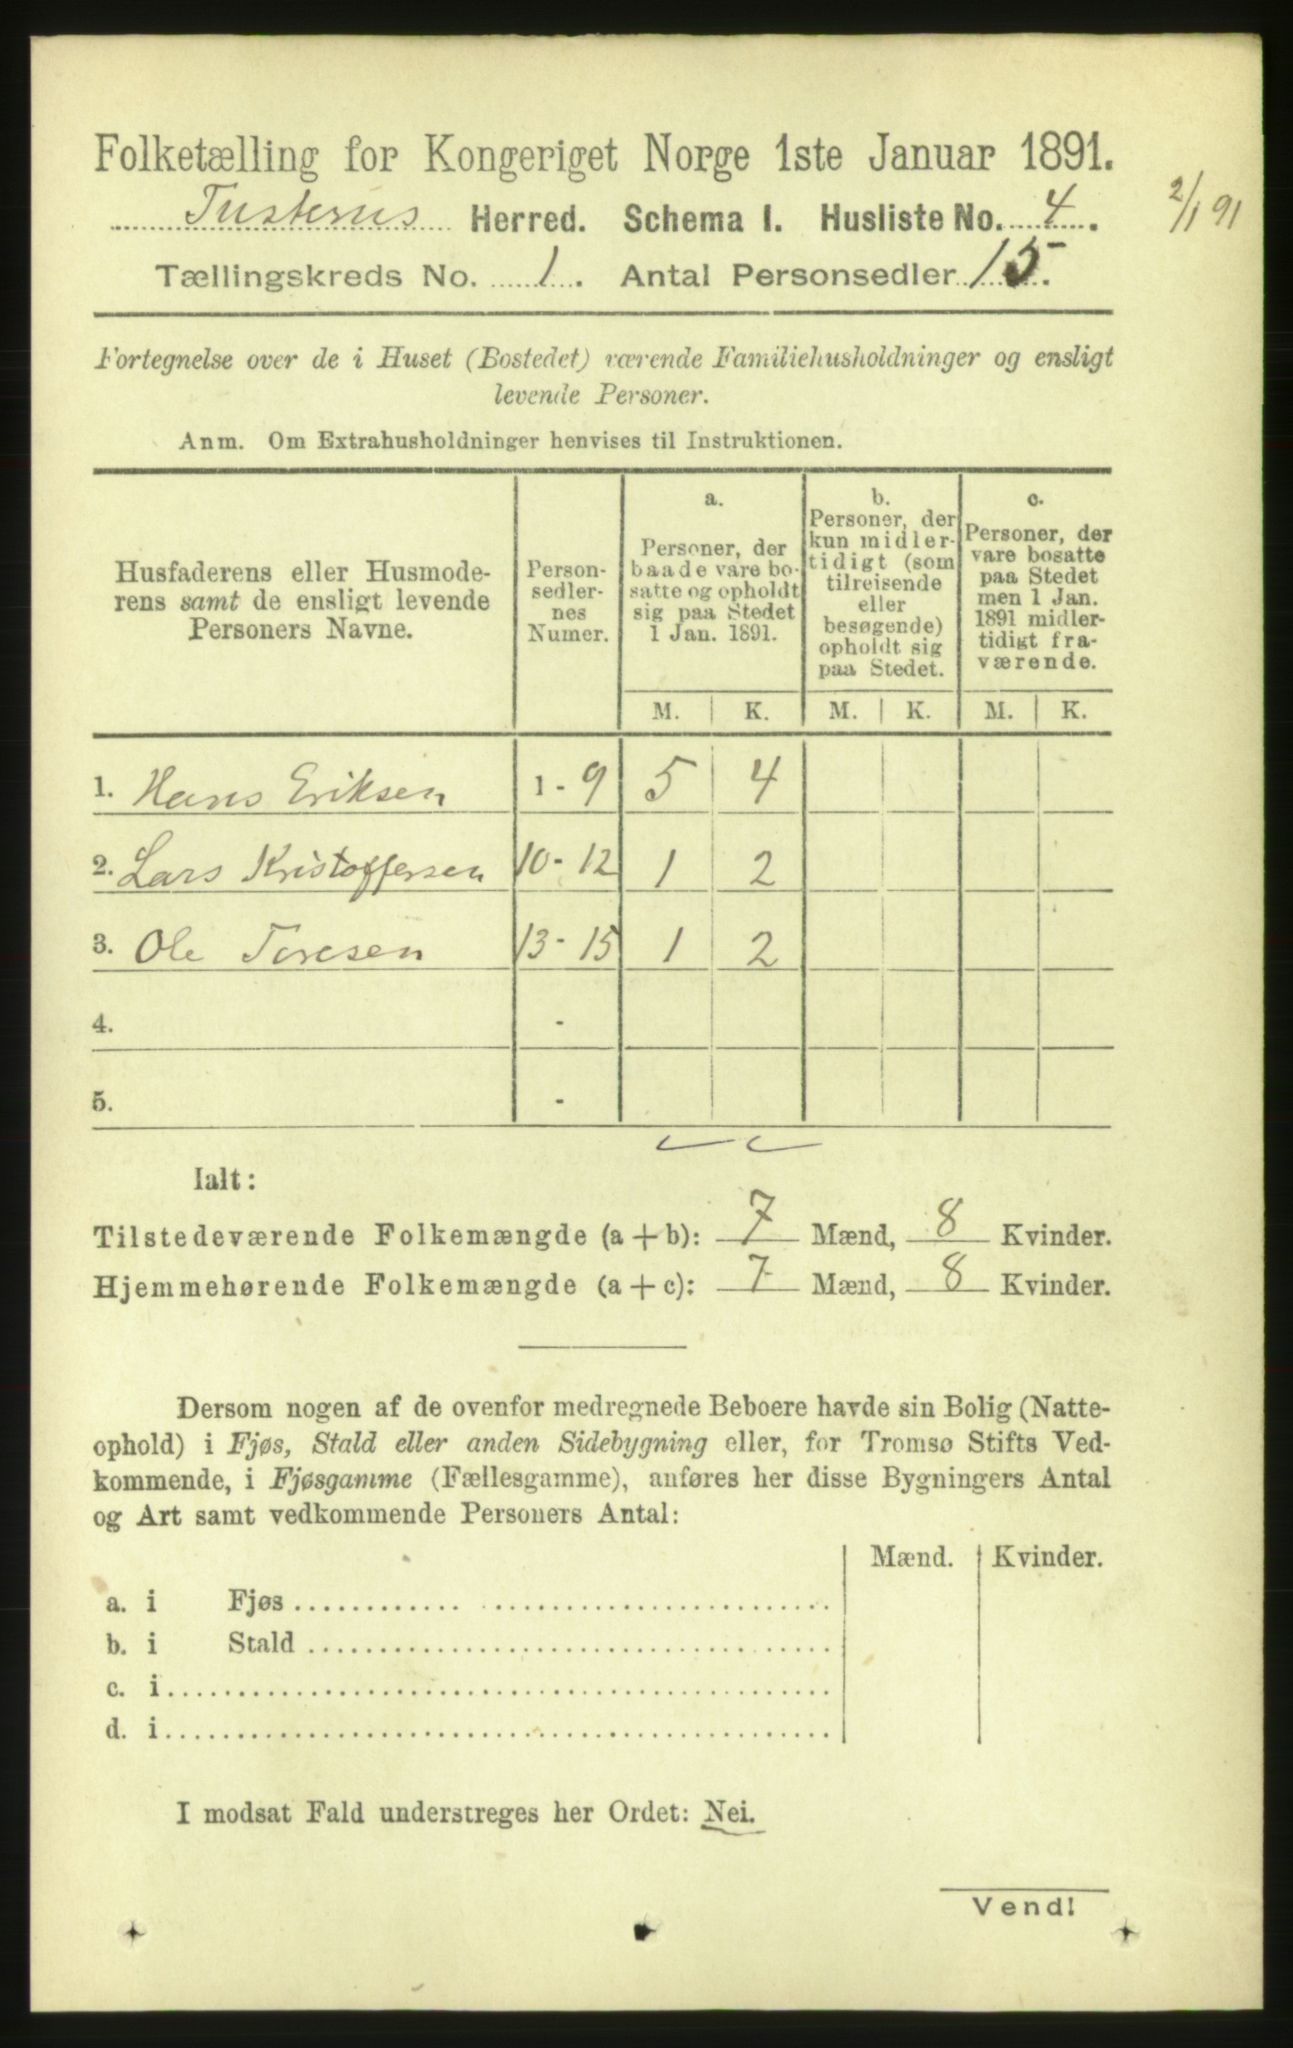 Folketælling for Kongeriget Norge 1ste Januar 1891.
2/1 91
Tusterns Herred. Schema 1. Husliste No. 4.
Tællingskreds No. 1. Antal Personsedler 15.
Fortegnelse over de i Huset (Bostedet) værende Familiehusholdninger og ensligt
levende Personer.
Anm. Om Extrahusholdninger henvises til Instruktionen.
Husfaderens eller Husmode-
rens samt de ensligt levende
Personers Navne.
Person-
sedler-
nes
Numer.
a.
Personer, der
baade vare bo-
satte og opholdt
sig paa Stedet
1 Jan. 1891.
b.
Personer, der
kun midler-
tidigt (som
tilreisende
eller
besøgende)
opholdt sig
paa Stedet.
c.
Personer, der
vare bosatte
paa Stedet
men 1 Jan.
1891 midler-
tidigt fra-
værende.
M. K. M. K. M. K.
1. Hans Eriksen 1-9 5 4
2. Lars Kristoffersen 10-12 1 2
3. Ole Toresen 13-15 1 2
4. -
5. -
Ialt:
Tilstedeværende Folkemængde (a+b): 7 Mænd, 8 Kvinder.
Hjemmehørende Folkemængde (a+c): 7 Mænd, 8 Kvinder.
Dersom nogen af de ovenfor medregnede Beboere havde sin Bolig (Natte-
ophold) i Fjøs, Stald eller anden Sidebygning eller, for Tromsø Stifts Ved-
kommende, i Fjøsgamme (Fællesgamme), anføres her disse Bygningers Antal
og Art samt vedkommende Personers Antal:
Mænd. Kvinder.
a. i Fjøs
b. i Stald
c. i
d. i
I modsat Fald understreges her Ordet: Nei.
Vend!